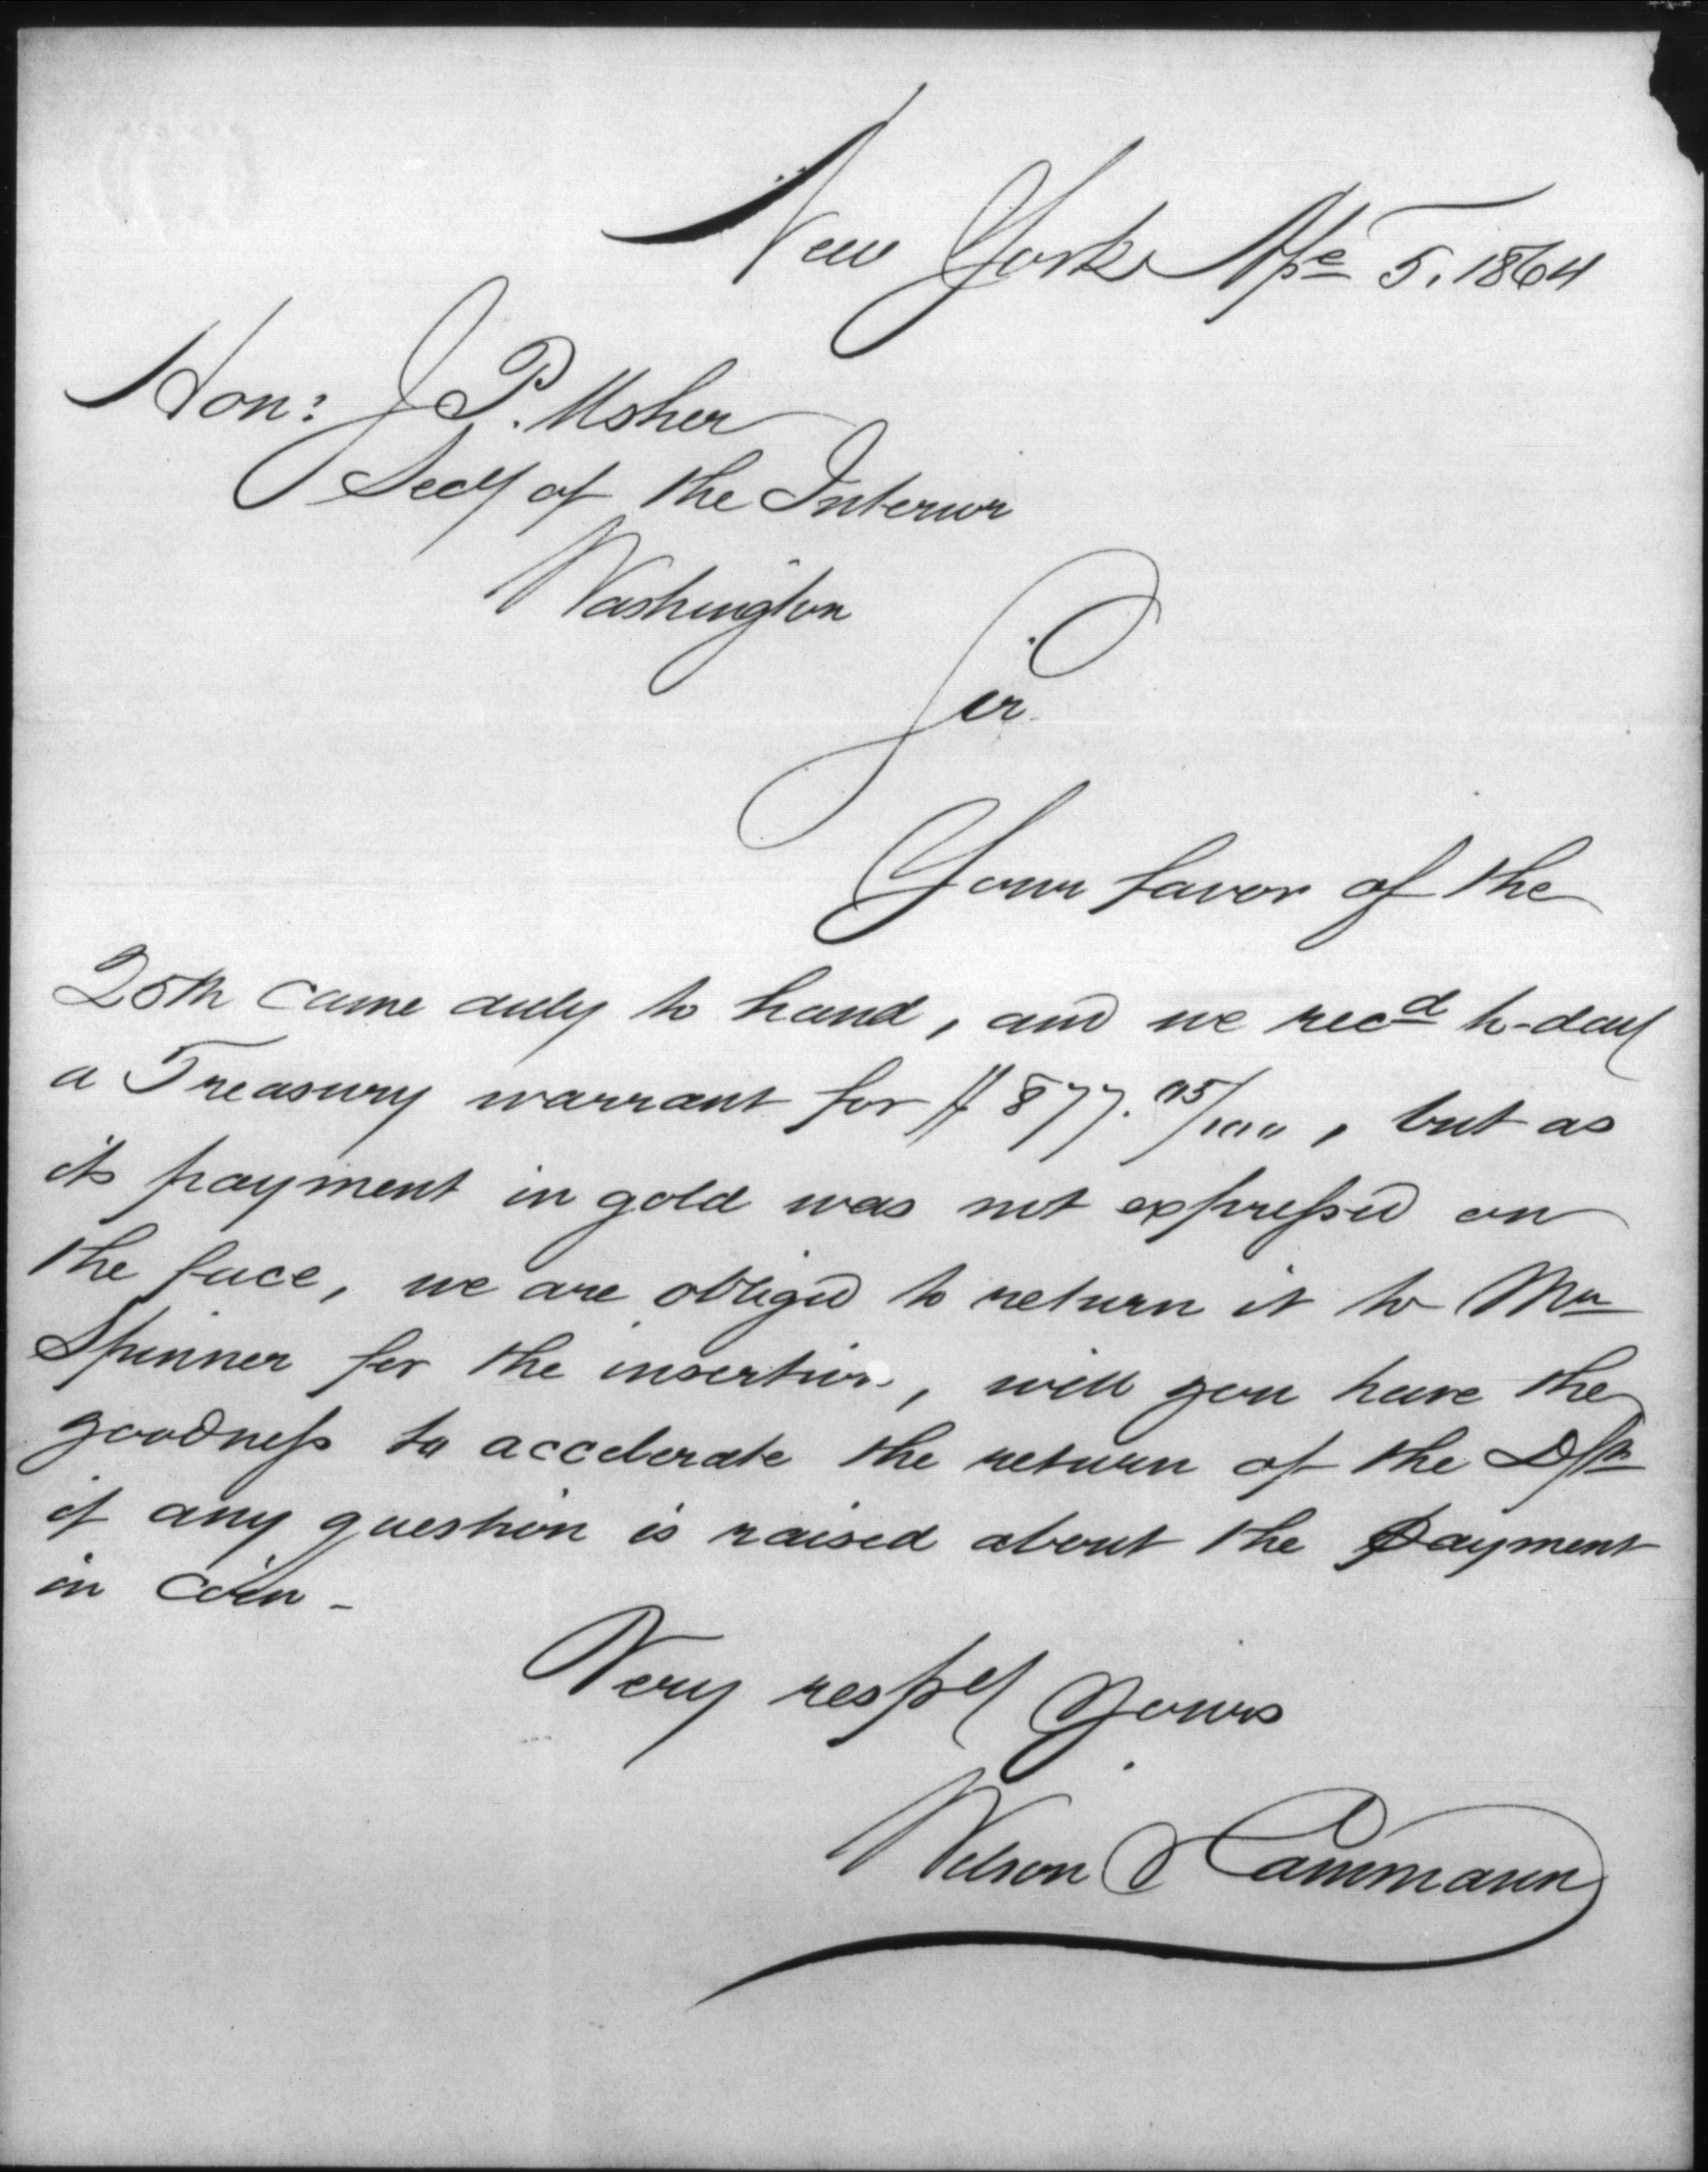 New York Ape 5. 1864
Hon: J P. Usher
Secy of the Interior
Washington
Sir.
Your favor of the
25th came duly to hand, and we recd to-day
a Treasury warrant for $ 877. 95/100, but as
its payment in gold was not expressed on
the face, we are obliged to return it to Mr
Spinner for the insertion, will you have the
goodness to accelerate the return of the Dft
if any question is raised about the Payment
in Coin -
Very respy Yours
Wilson & Cammann